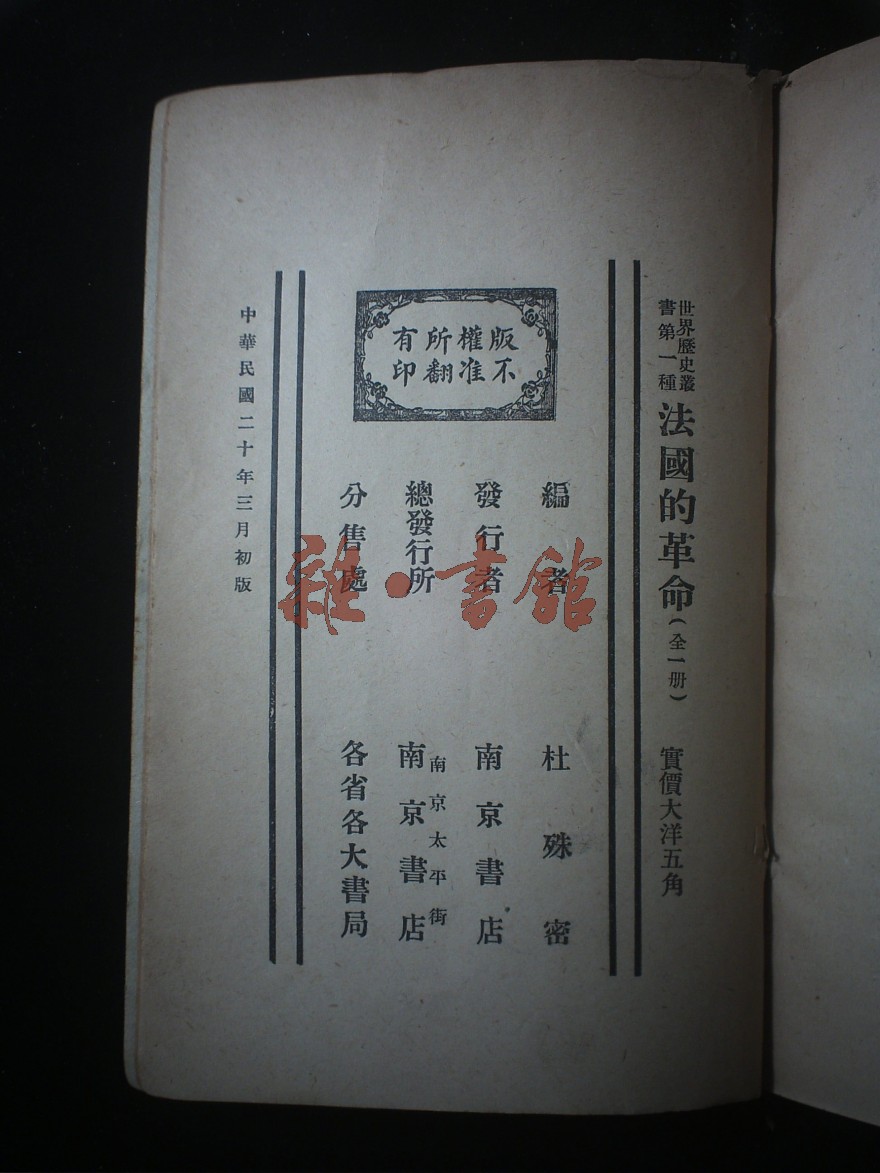 世界歷史叢
書第一種
法國的革命（全一册）　實價大洋五角
版權所有
不准翻印
編者　杜殊密
發行者　南京書店
南京太平街
總發行所　南京書店
分售處　各省各大書局
中華民國二十年三月初版
雜·書館